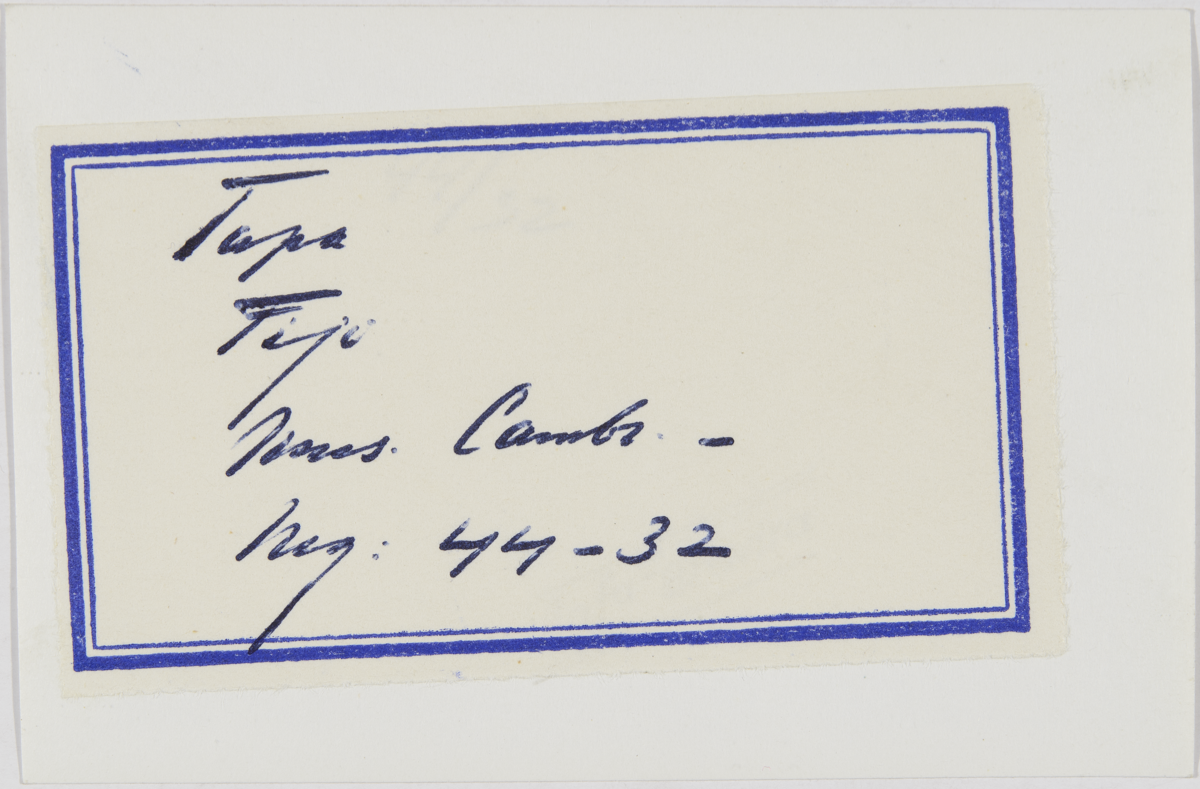 Tapa
Fiji
Mus. Cambr. -
Neg: 44-32